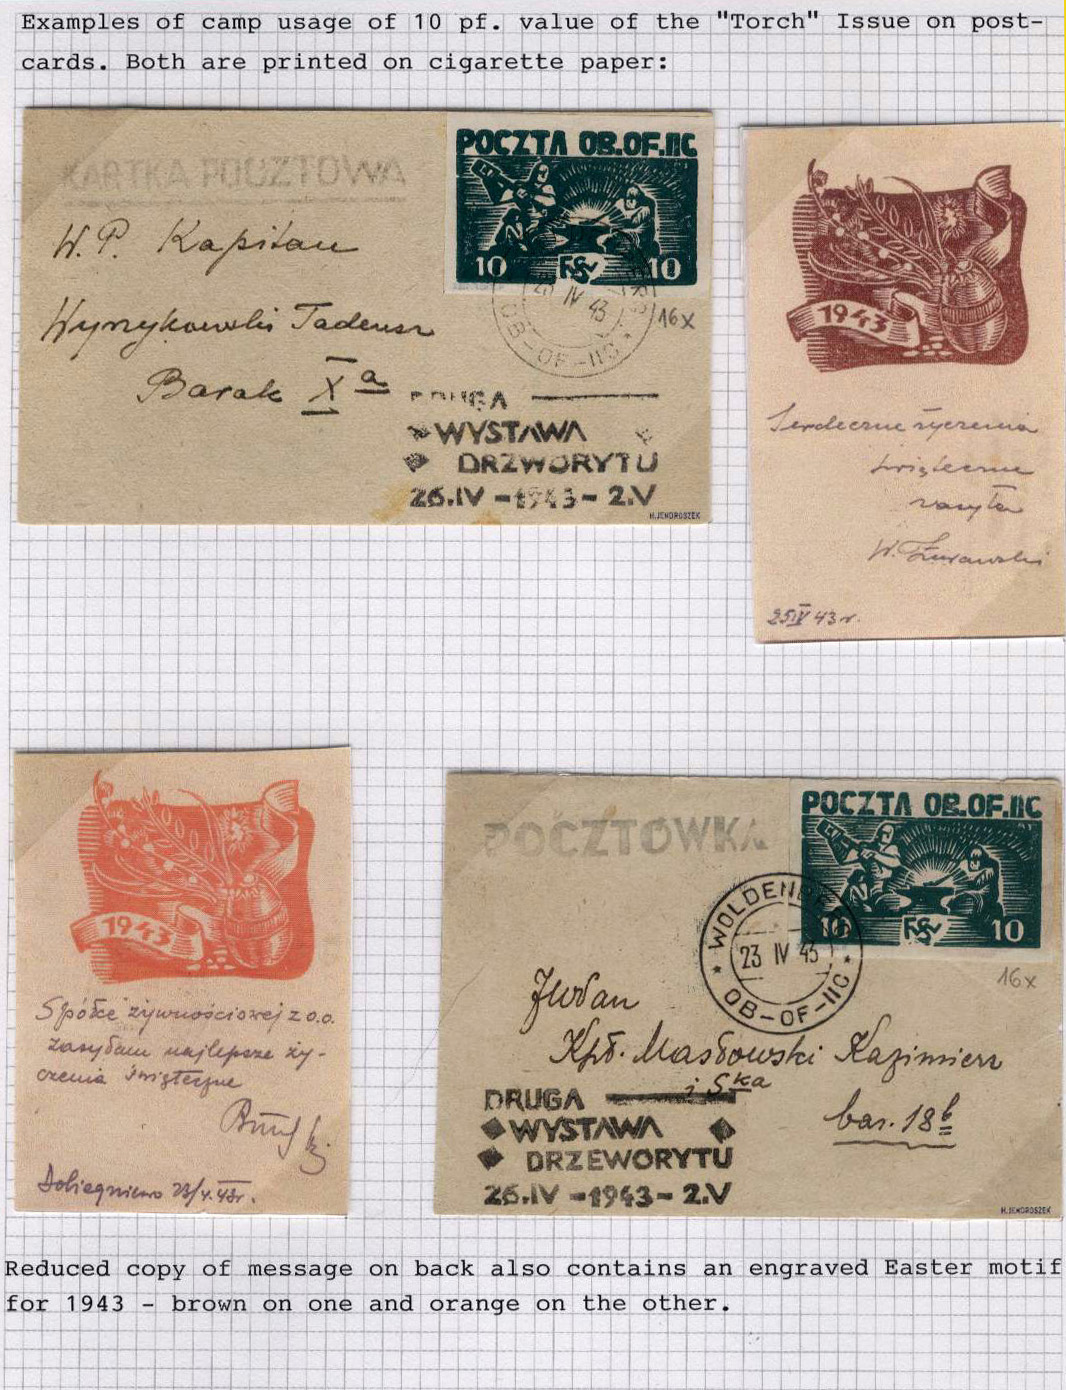 Examples of camp usage of 10 pf. value of the "Torch" Issue on post-
cards. Both are printed on cigarette paper:
KARTKA POCZTOWA
POCZTA OB.OF.IIC
10 10
W. P. Kapitan
23 IV 43
OB-OF-IIC
16x
Wyrzykowski Tadeusz
Barak Xa
DRUGA
WYSTAWA
DRZWORYTU
26.IV - 1943 - 2.V
H.JENDROSZEK
1943
Serdeczne życzenia
świąteczne
zasyła
W. Żurawski
25 IV 43 r.
1943
Spółce żywnościowej z o.o.
zasyłam najlepsze ży-
czenia świąteczne
Dobiegniewo 23/4. 43r.
POCZTÓWKA
POCZTA OB.OF.IIC
10 10
WOLDENBERG
23 IV 43
OB-OF-IIC
16x
JWPan
Kpt. Masłowski Kazimierz
i Ska
bar. 18b
DRUGA
WYSTAWA
DRZEWORYTU
26.IV - 1943 - 2.V
H.JENDROSZEK
Reduced copy of message on back also contains an engraved Easter motif
for 1943 - brown on one and orange on the other.